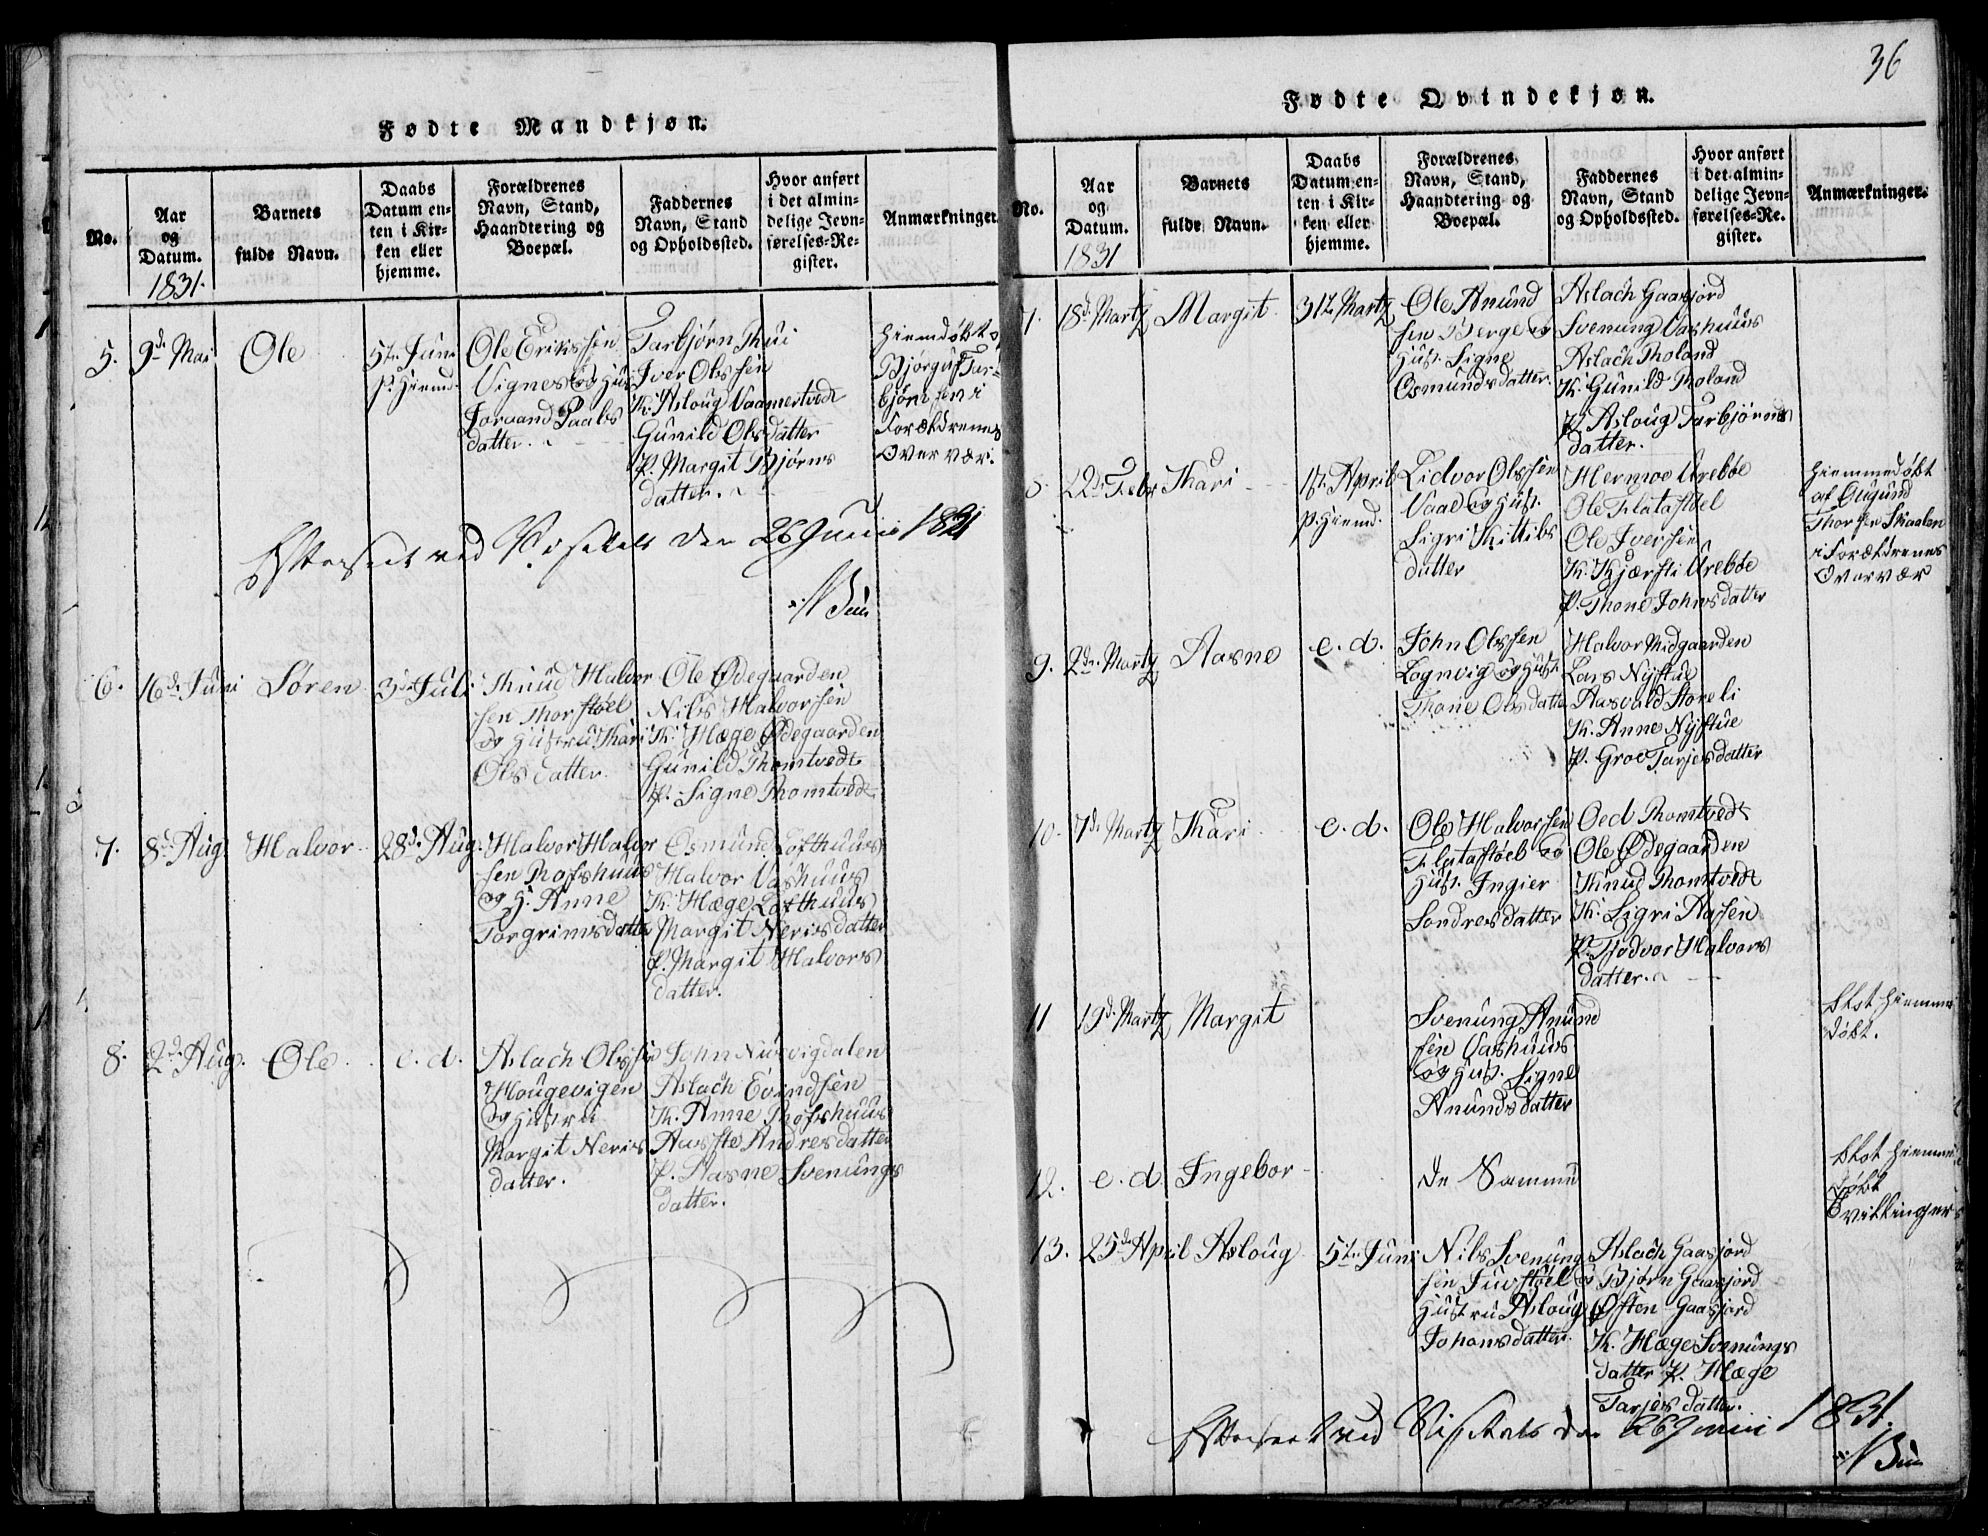 36
Fødte Mandkjøn.
No.
Aar
og
Datum.
1831.
Barnets
fulde Navn.
Daabs
Datum en-
ten i Kir-
ken eller
hjemme.
Forældrenes
Navn, Stand,
Haandtering og
Boepæl.
Faddernes
Navn, Stand
og Opholdssted.
Hvor anført
i det almin-
delige Jevn-
førelses-Re-
gister.
Anmærkninger.
5.
9de Mai
Ole
5te Juni
p. Hiemd.
Ole Erikssen
Vignes og Hus
Joraand Paals
datter.
Tarbjørn Thui
Iver Olssen
K. Asloug Vaamertvedt
Gunild Olsdatter
P. Margit Bjørns
datter.
Hiemdøbt af
Bjørguf Tar-
bjørnsen i
Forældrenes
Overvær.
Efterseet ved Visitats den 26 Junii 1831
N Bun
6.
16de Juni
Søren
3die Juli
Knud Halvor
sen Thorstøel
og Hustru Kari
Olsdatter
Ole Ødegaarden
Nils Halvorsen
K. Hæge Ødegaarden
Gunild Thomtvedt
P. Signe Thomtvedt
7.
8de Aug.
Halvor
28de Aug.
Halvor Halvor
sen Rofshuus
og H. Anne
Torgrimsdatter
Osmund Lofthuus
Halvor Vashuus
K. Hæge Lofthuus
Margit Nerisdatter
P. Margit Halvors
datter.
8.
2de Aug.
Ole
e. d.
Aslach Olssen
Hougevigen
og Hustru
Margit Neris
datter.
John Nurvigdalen
Aslach Evindsen
K. Anne Rofshuus
Aaste Andresdatter
P. Aasne Svenungs
datter.
Fødte Qvindekjøn.
No.
Aar
og
Datum.
1831
Barnets
fulde Navn.
Daabs
Datum en-
ten i Kir-
ken eller
hjemme.
Forældrenes
Navn, Stand,
Haandtering og
Boepæl.
Faddernes
Navn, Stand
og Opholdssted.
Hvor anført
i det almin-
delige Jevn-
førelses-Re-
gister.
Anmærkninger.
7.
18de Martz
Margit
31te Martz
Ole Anund
sen Berge og
Hust. Signe
Osmundsdatter.
Aslach Gaasjord
Svenung Vashuus
Aslach Tholand
K. Gunild Tholand
P. Asloug Tarbjørns
datter.
8.
22de Febr
Kari
1ste April
p. Hiemd.
Eidvor Olssen
Vaae og Hust.
Sigri Kittils
datter
Hermoe Urebøe
Ole Flatastøel
Ole Iverssen
K. Kjærsti Urebøe
P. Thone Johnsdatter
Hiemmedøbt
af Augund
Thorsen Skaalen
i Forældrenes
Overvær
9.
2de Martz
Aasne
e. d.
John Olssen
Lognvig og Hust
Thone Olsdatter
Halvor Midgaarden
Lars Nystue
Aasvald Storeli
K. Anne Nystue
P. Groe Tarjesdatter
10.
7de Martz
Kari
e. d.
Ole Halvorsen
Flatastøel og
Hust. Ingier
Sondresdatter
Oed Thomtvedt
Ole Ødegaarden
Knud Thomtvedt
K. Sigri Aasen
P. Tjodvor Halvors
datter.
11
19de Martz
Margit
Svenung Anund
sen Vashuus
og Hust. Signe
Anundsdatter
Blot Hiemme
døbt.
12.
e. d.
Ingebor
de Samme
Blot Hiemme
døbt
Tvillinger
13.
25de April
Asloug
5te Juni
Nils Svenung
sen Juvstøel og
Hustru Asloug
Johansdatter.
Aslach Gaasjord
Bjørn Gaasjord
Østen Gaasjord
K. Hæge Svenungs
datter P. Hæge
Tarjesdatter.
Efterseet ved Visitats den 26 Junii 1831.
N Bun